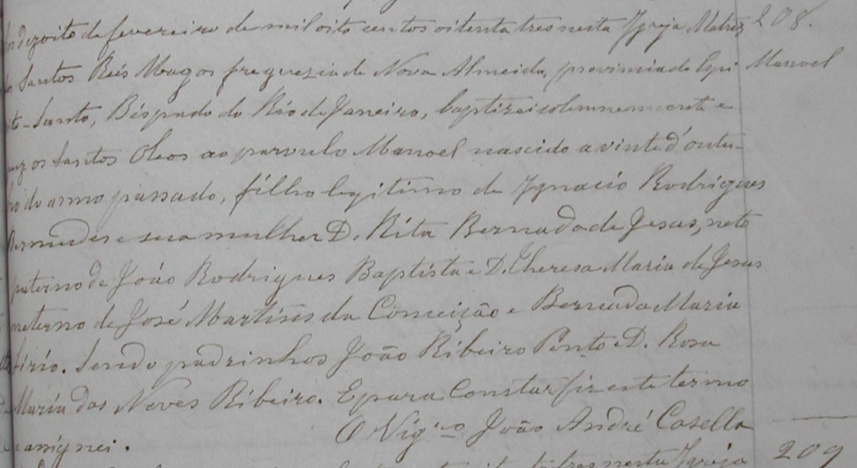 dezoito de fevereiro de mil oito centos oitenta tres nesta Igreja Matriz 208.
Santos Reis Magos freguezia de Nova Almeida, provincia do Espi Manoel
to-Santo, Bispado do Rio de Janeiro, baptizei solemnemente e
puz os Santos Oleos ao parvulo Manoel nascido a vinte d'outu-
bro do anno passado, filho legitimo de Ignacio Rodrigues
Bermudes e sua mulher D. Rita Bernada de Jesus, neto
paterno de João Rodrigues Baptista e D. Theresa Maria de Jesus
materno de José Martins da Conceição e Bernada Maria
Sendo padrinhos João Ribeiro Pinto e D. Rosa
Maria das Neves Ribeiro. E para constar fiz este termo
e assignei. O Vigro João André Casella
tres nesta Igreja 209